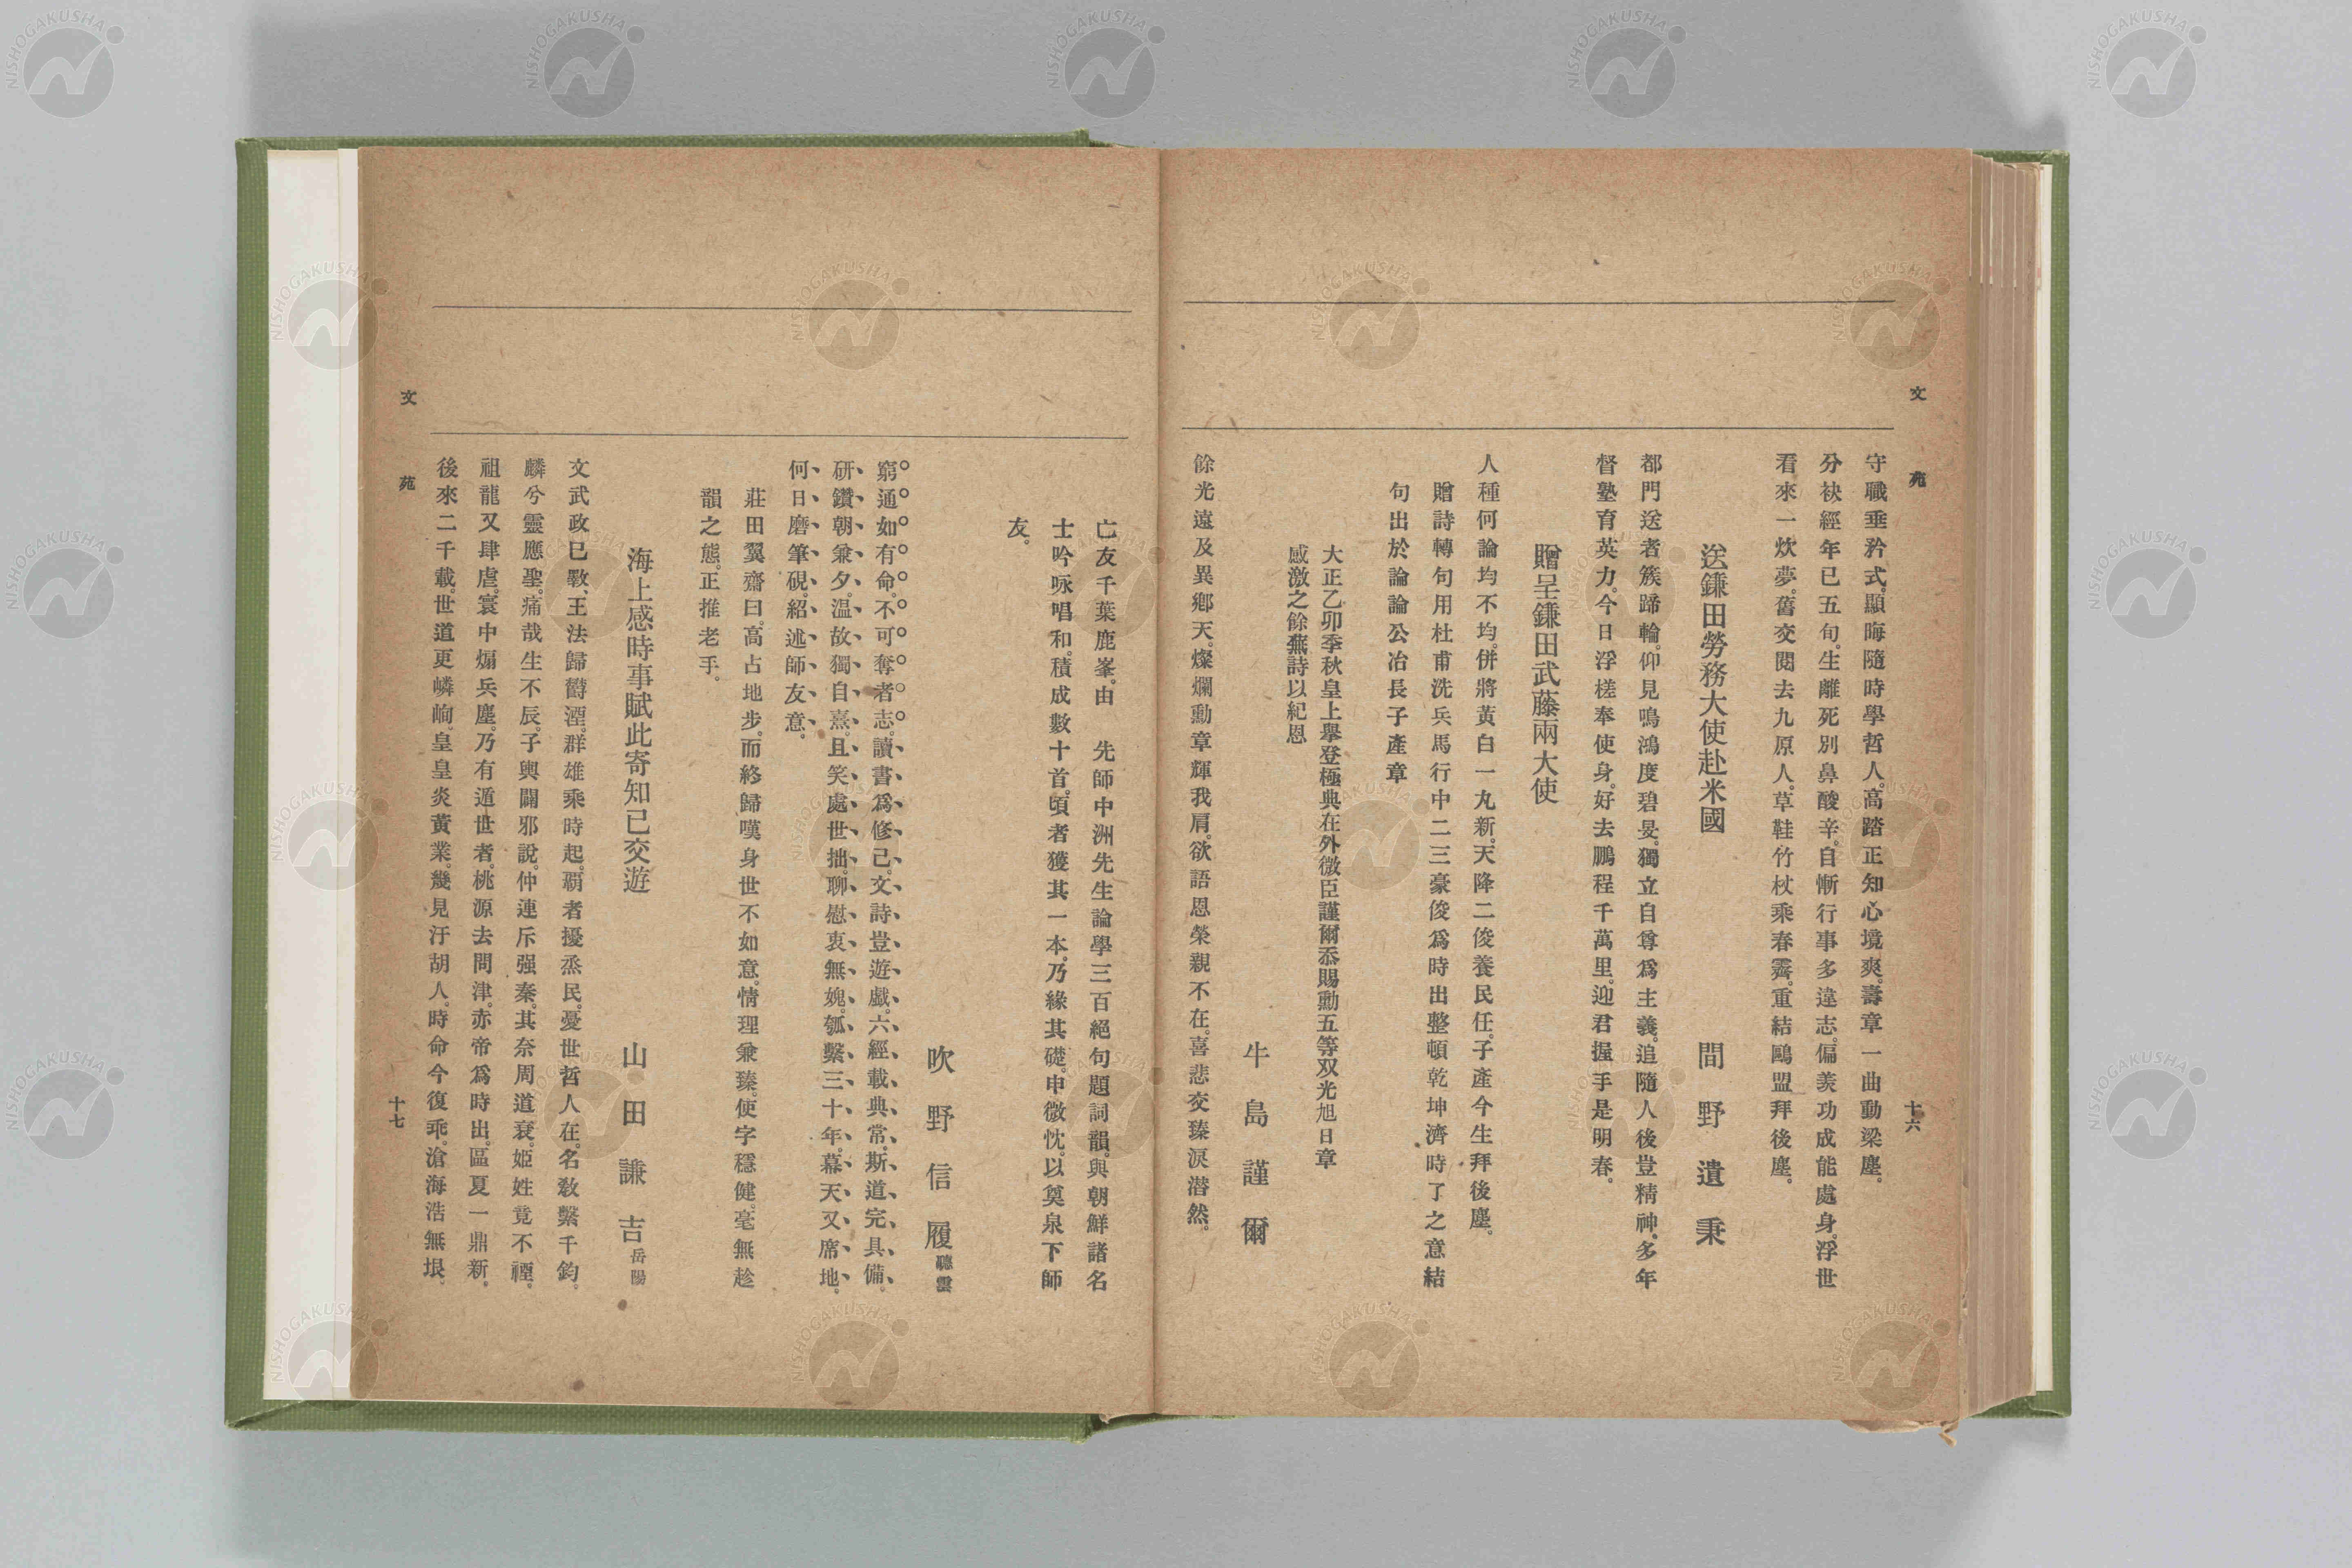 文苑
十六
守職垂矜式。顯晦隨時學哲人。高踏正知心境爽。壽章一曲動梁塵。
分袂經年已五旬。生離死別鼻酸辛。自慚行事多違志。偏羨功成能處身。浮世
看來一炊夢。舊交閱去九原人。草鞋竹杖乘春霽。重結鷗盟拜後塵。
送鎌田勞務大使赴米國
間野遺秉
都門送者簇蹄輪。仰見鳴鴻度碧旻。獨立自尊爲主義。追隨人後豈精神。多年
督塾育英力。今日浮槎奉使身。好去鵬程千萬里。迎君握手是明春。
贈呈鎌田武藤兩大使
人種何論均不均。併將黃白一丸新。天降二俊養民任。子產今生拜後塵。
贈詩轉句用杜甫洗兵馬行中二三豪俊爲時出整頓乾坤濟時了之意結
句出於論論公冶長子產章
大正乙卯季秋皇上擧登極典在外微臣謹爾忝賜勳五等双光旭日章
感激之餘蕪詩以紀恩
牛島謹爾
餘光遠及異鄕天。燦爛勳章輝我肩。欲語恩榮親不在。喜悲交臻淚潸然。
亡友千葉鹿峯。由　先師中洲先生論學三百絕句題詞韻。與朝鮮諸名
士吟咏唱和。積成數十首。頃者獲其一本。乃緣其礎。申微忱。以奠泉下師
友。
吹野信履聽雲
窮通如有命。不可奪者志。讀書爲修己。文詩豈遊戲。六經載典常。斯道完具備。
研鑽朝兼夕。温故獨自熹。且笑處世拙。聊慰衷無媿。瓠繫三十年。幕天又席地。
何日磨筆硯。紹述師友意。
莊田翼齋曰。高占地步。而終歸嘆身世不如意。情理兼臻。使字穩健。毫無趁
韻之態。正推老手。
海上感時事賦此寄知已交遊
山田謙吉岳陽
文武政已斁。王法歸欝湮。群雄乘時起。覇者擾烝民。憂世哲人在。名敎繫千鈞。
麟兮靈應聖。痛哉生不辰。子輿闢邪說。仲連斥强秦。其奈周道衰。姬姓竟不禋。
祖龍又肆虐。寰中煽兵塵。乃有遁世者。桃源去問津。赤帝爲時出。區夏一鼎新。
後來二千載。世道更嶙峋。皇皇炎黃業。幾見汙胡人。時命今復乖。滄海浩無垠。
文苑
十七